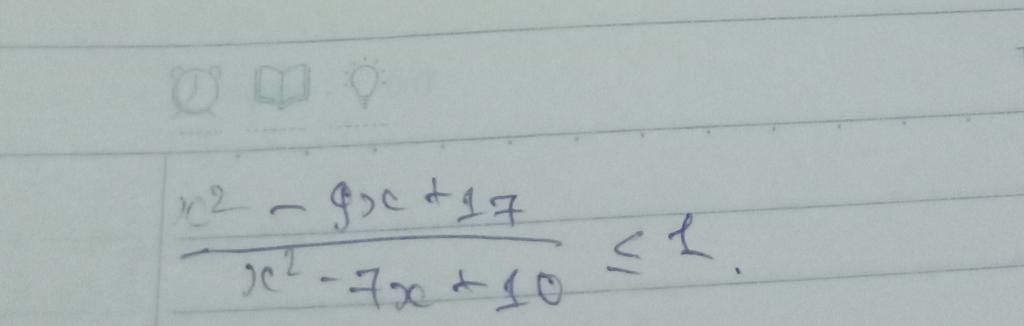 x² - 9x + 17
x² - 7x + 10 ≤ 1.